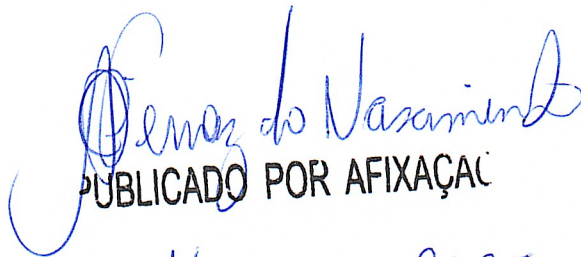 Ferraz do Nascimento
PUBLICADO POR AFIXAÇÃO